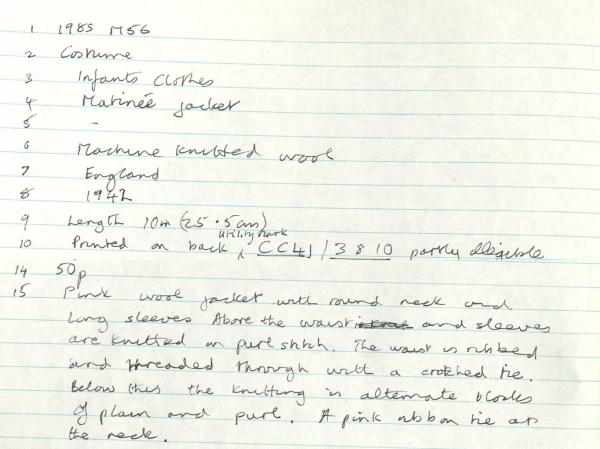 1 1985 M56
2 Costume
3 Infants Clothes
4 Matinée jacket
5 -
6 Machine knitted wool
7 England
8 1942
9 Length 10in (25.5cm)
utility mark
10 Printed on back ^ CC41 / 3 8 10 partly illegible
14 50p
15 Pink wool jacket with round neck and
long sleeves Above the waist and sleeves
are knitted in purl stitch. The waist is ribbed
and threaded through with a crotched tie.
Below this the knitting in alternate blocks
of plain and purl. A pink ribbon tie at
the neck.